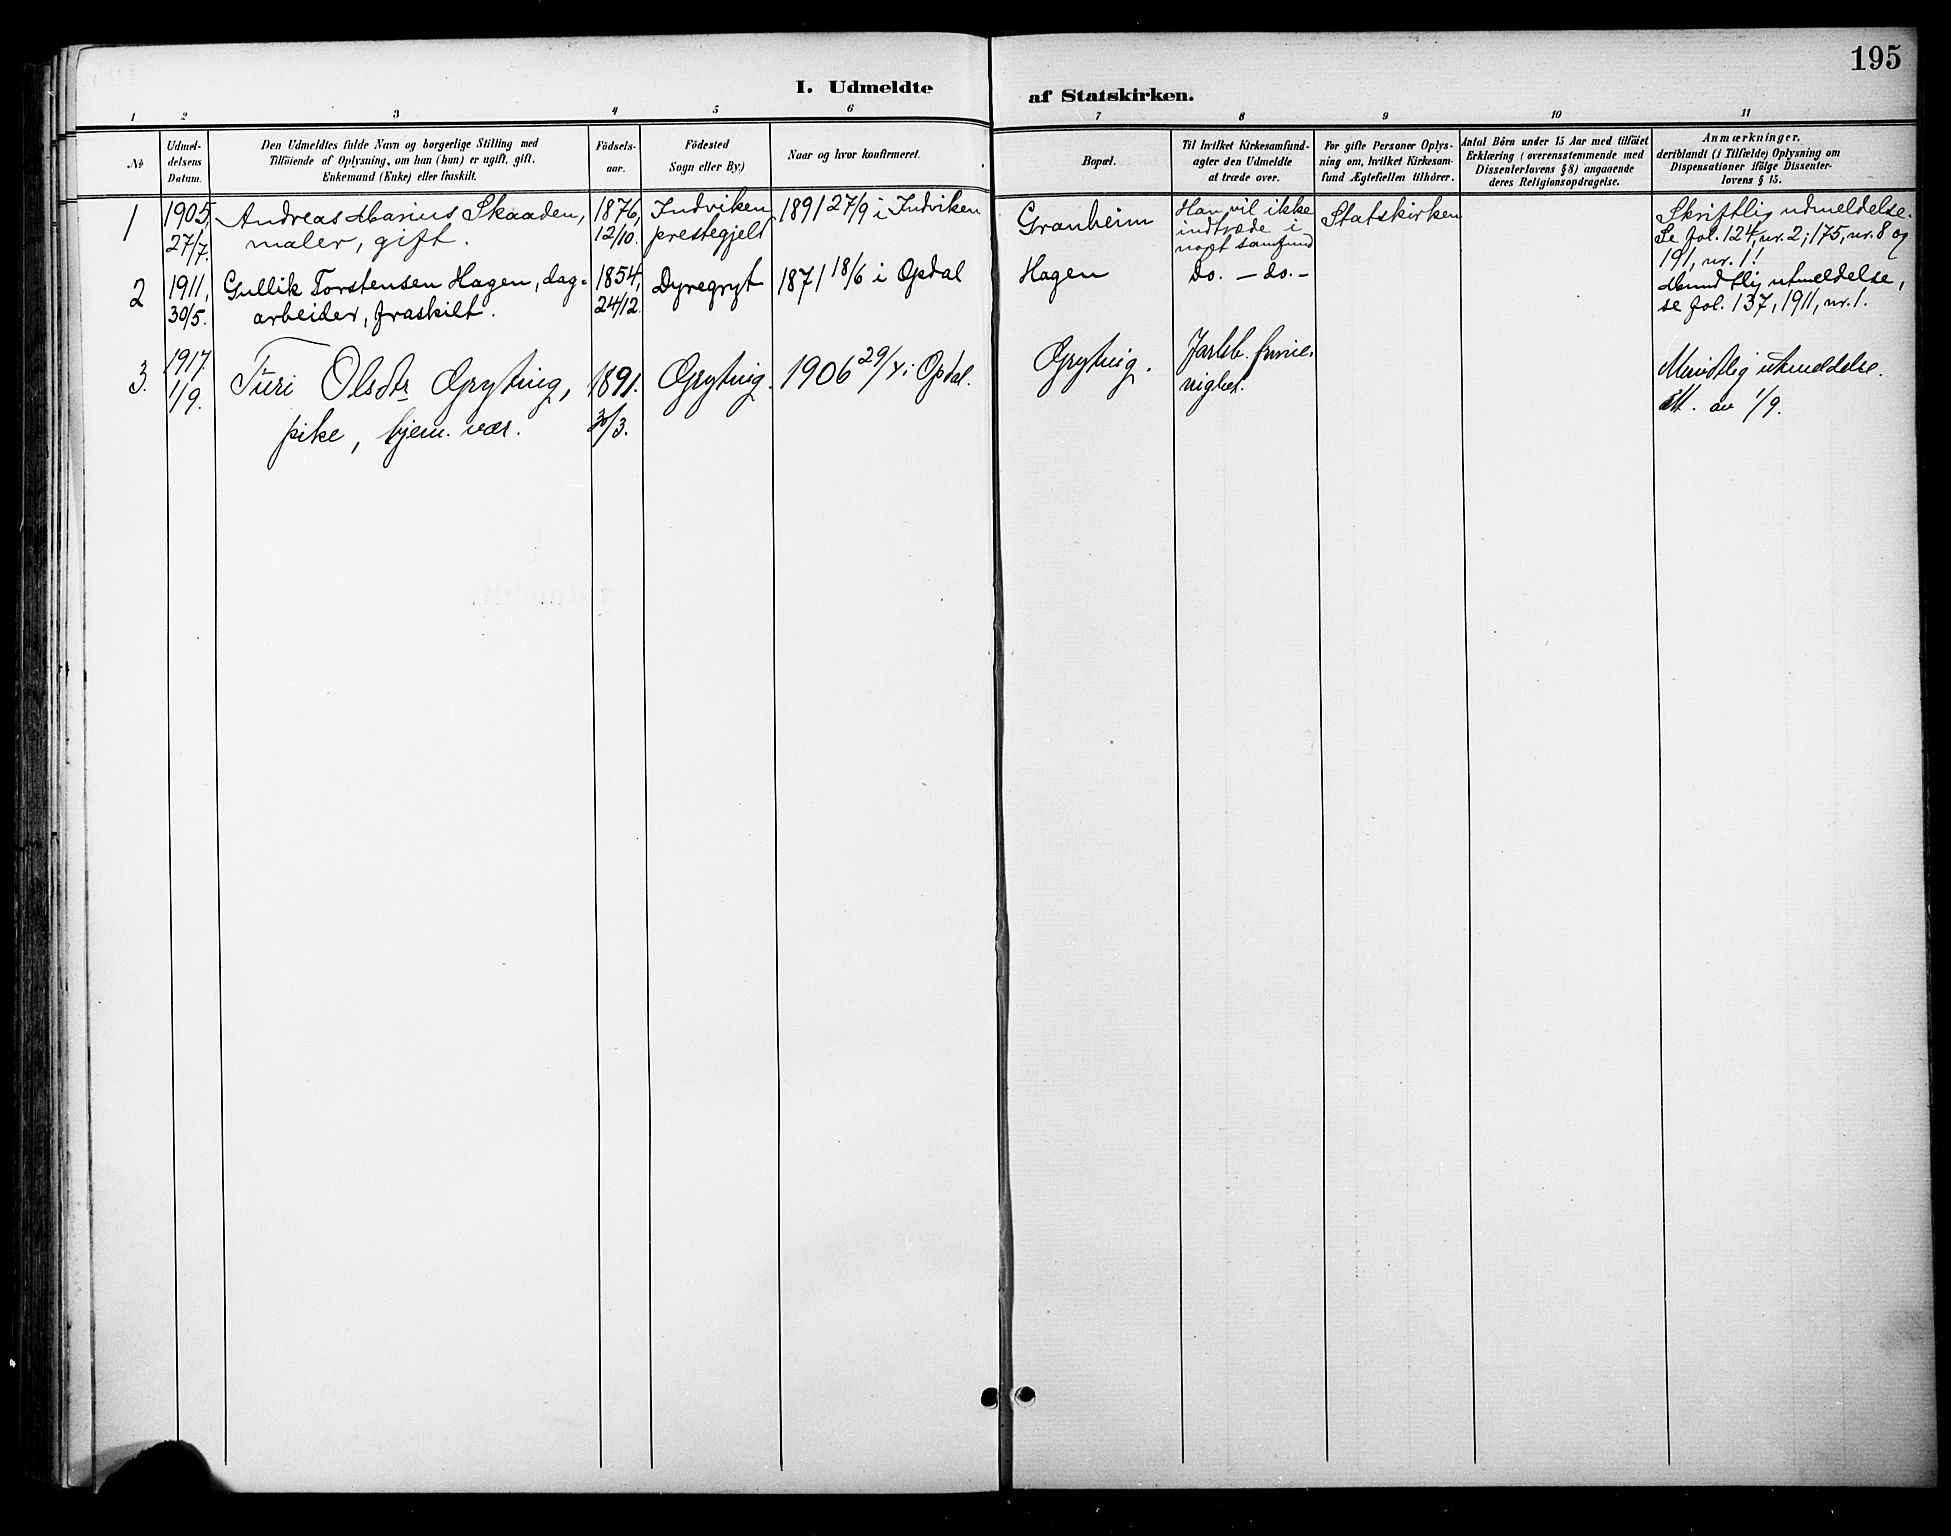 195
I. Udmeldte af Statskirken.
1 2 3 4 5 6 7 8 9 10 11
No
Udmel-
delsens
Datum.
Den Udmeldtes fulde Navn og borgerlige Stilling med
Tilföiende af Oplysning, om han (hun) er ugift, gift,
Enkemand (Enke) eller fraskilt.
Födsels-
aar.
Födested
Sogn eller By.)
Naar og hvor konfirmeret.
Bopæl.
Til hvilket Kirkesamfund
agter den Udmeldte
at træde over.
For gifte Personer Oplys-
ning om, hvilket Kirkesam-
fund Ægtefællen tilhörer.
Antal Börn under 15 Aar med tilföiet
Erklæring (overensstemmende med
Dissenterlovens § 8) angaaende
deres Religionsopdragelse.
Anmærkninger,
deriblandt (i Tilfælde) Oplysning om
Dispensationer ifölge Dissenter-
lovens § 15.
1
1905,
27/7.
Andreas Marius Skaaden,
maler, gift.
1876,
12/10.
Indviken
prestegjeld
1891 27/9 i Indviken
Granheim
Han vil ikke
indtræde i
noget samfund
Statskirken
Skriftlig udmeldelse.
Se fol. 124, nr. 2; 175, nr. 8 og
191, nr. 1!
2
1911,
30/5.
Gullik Torstensen Hagen, dag-
arbeider, fraskilt.
1854,
24/12.
Dyregryt
1871 18/6 i Opdal
Hagen
Do. - do. -
Mundtlig utmeldelse,
se fol. 137, 1911, nr. 1.
3.
1917.
1/9.
Turi Olsdtr Gryting,
pike, hjem. vær.
1891.
/3.
Gryting.
1906 29/ i Opdal.
Gryting.
Jarlsb. frime-
nighet.
Mundtlig utmeldelse.
av 1/9.